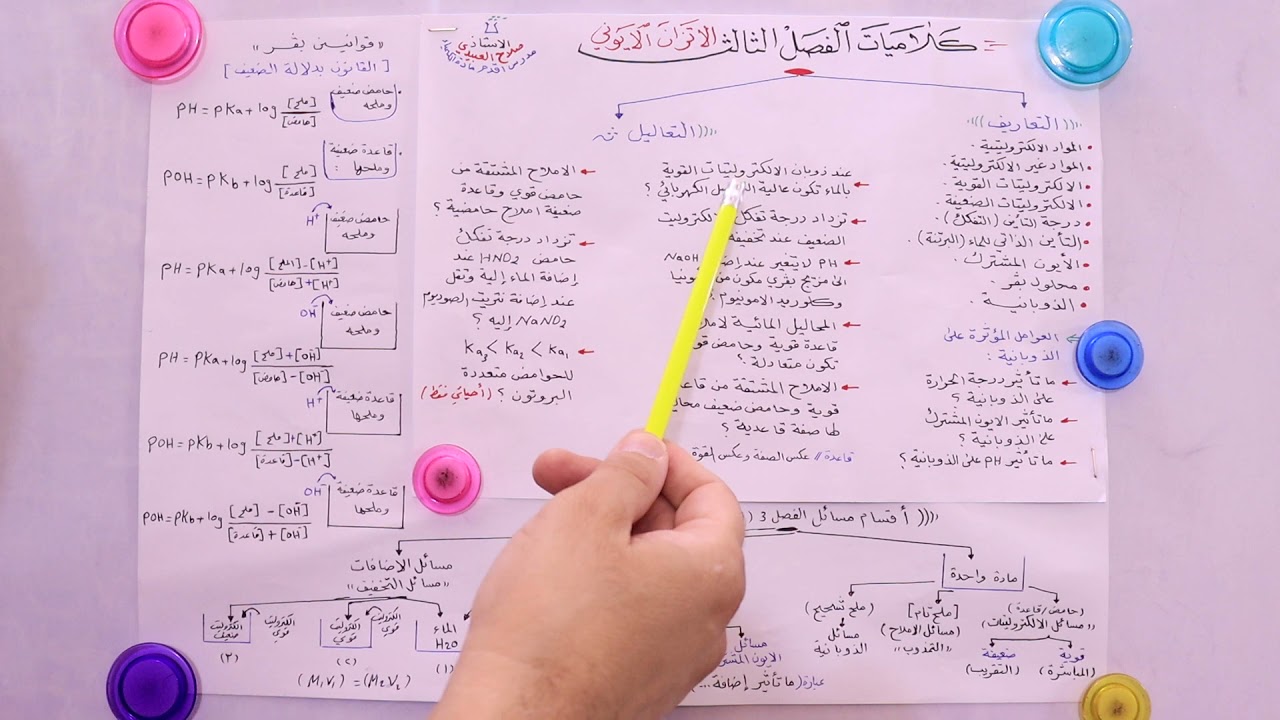 كلاميات الفصل الثالث الاتزان الايوني
الاستاذ
صلاح العبيدي
مدرس اقدم مادة الكيمياء
التعاريف
• المواد الالكتروليتية
• المواد غير الالكتروليتية
• الالكتروليتات القوية
• الالكتروليتات الضعيفة
• درجة التأين (التفكك)
• التأين الذاتي للماء (البرتنة)
• الأيون المشترك
• محلول بفر
• الذوبانية
العوامل المؤثرة على
الذوبانية:
ما تأثير درجة الحرارة
على الذوبانية ؟
ما تأثير الايون المشترك
على الذوبانية ؟
ما تأثير PH على الذوبانية ؟
التعاليل
عند ذوبان الالكتروليتات القوية
بالماء تكون عالية الكهربائي ؟
تزداد درجة تفكك
الضعيف عند تخفيفه
PH لا يتغير عند NaOH
الى مزيج بفري مكون من
وكلوريد الامونيوم ؟
المحاليل المائية
قاعدة قوية وحامض
تكون متعادلة ؟
الاملاح المشتقة من
قوية وحامض ضعيف
صفة قاعدية ؟
قاعدة // عكس الصفة وعكس القوة
الاملاح المشتقة من
حامض قوي وقاعدة
ضعيفة املاح حامضية ؟
تزداد درجة تفكك
حامض HNO2 عند
إضافة الماء إلية وتقل
عند إضافة نتريت الصوديوم
NaNO2 إليه ؟
Ka3 < Ka2 < Ka1
للحوامض متعددة
البروتون ؟ (أحيائي فقط)
« قوانين بفر »
[ القانون بدلالة الضعيف ]
• حامض ضعيف
وملحه
PH = PKa + log [ملح]/[حامض]
• قاعدة ضعيفة
وملحها :
POH = PKb + log [ملح]/[قاعدة]
H+
حامض ضعيف
وملحه
PH = PKa + log [الملح]-[H+]/[حامض]+[H+]
OH-
حامض ضعيف
وملحه
PH = PKa + log [ملح]+[OH-]/[حامض]-[OH-]
H+
قاعدة ضعيفة
وملحها
POH = PKb + log [ملح]+[H+]/[قاعدة]-[H+]
OH-
قاعدة ضعيفة
وملحها
POH = PKb + log [ملح]-[OH-]/[قاعدة]+[OH-]
أقسام مسائل الفصل 3
مادة واحدة
(حامض/قاعدة)
«مسائل الالكتروليتات»
قوية
(المباشرة)
ضعيفة
(التقريب)
[ملح تام]
(مسائل الاملاح)
«التذوب»
(ملح شحيح)
مسائل
الذوبانية
مسائل
الايون المشترك
عبارة (ما تأثير إضافة...
مسائل الإضافات
«مسائل التخفيف»
الماء
H2O
(1)
الكتروليت
قوي
الكتروليت
قوي
(٢)
الكتروليت
قوي
الكتروليت
ضعيف
(٣)
(M1V1) = (M2V2)